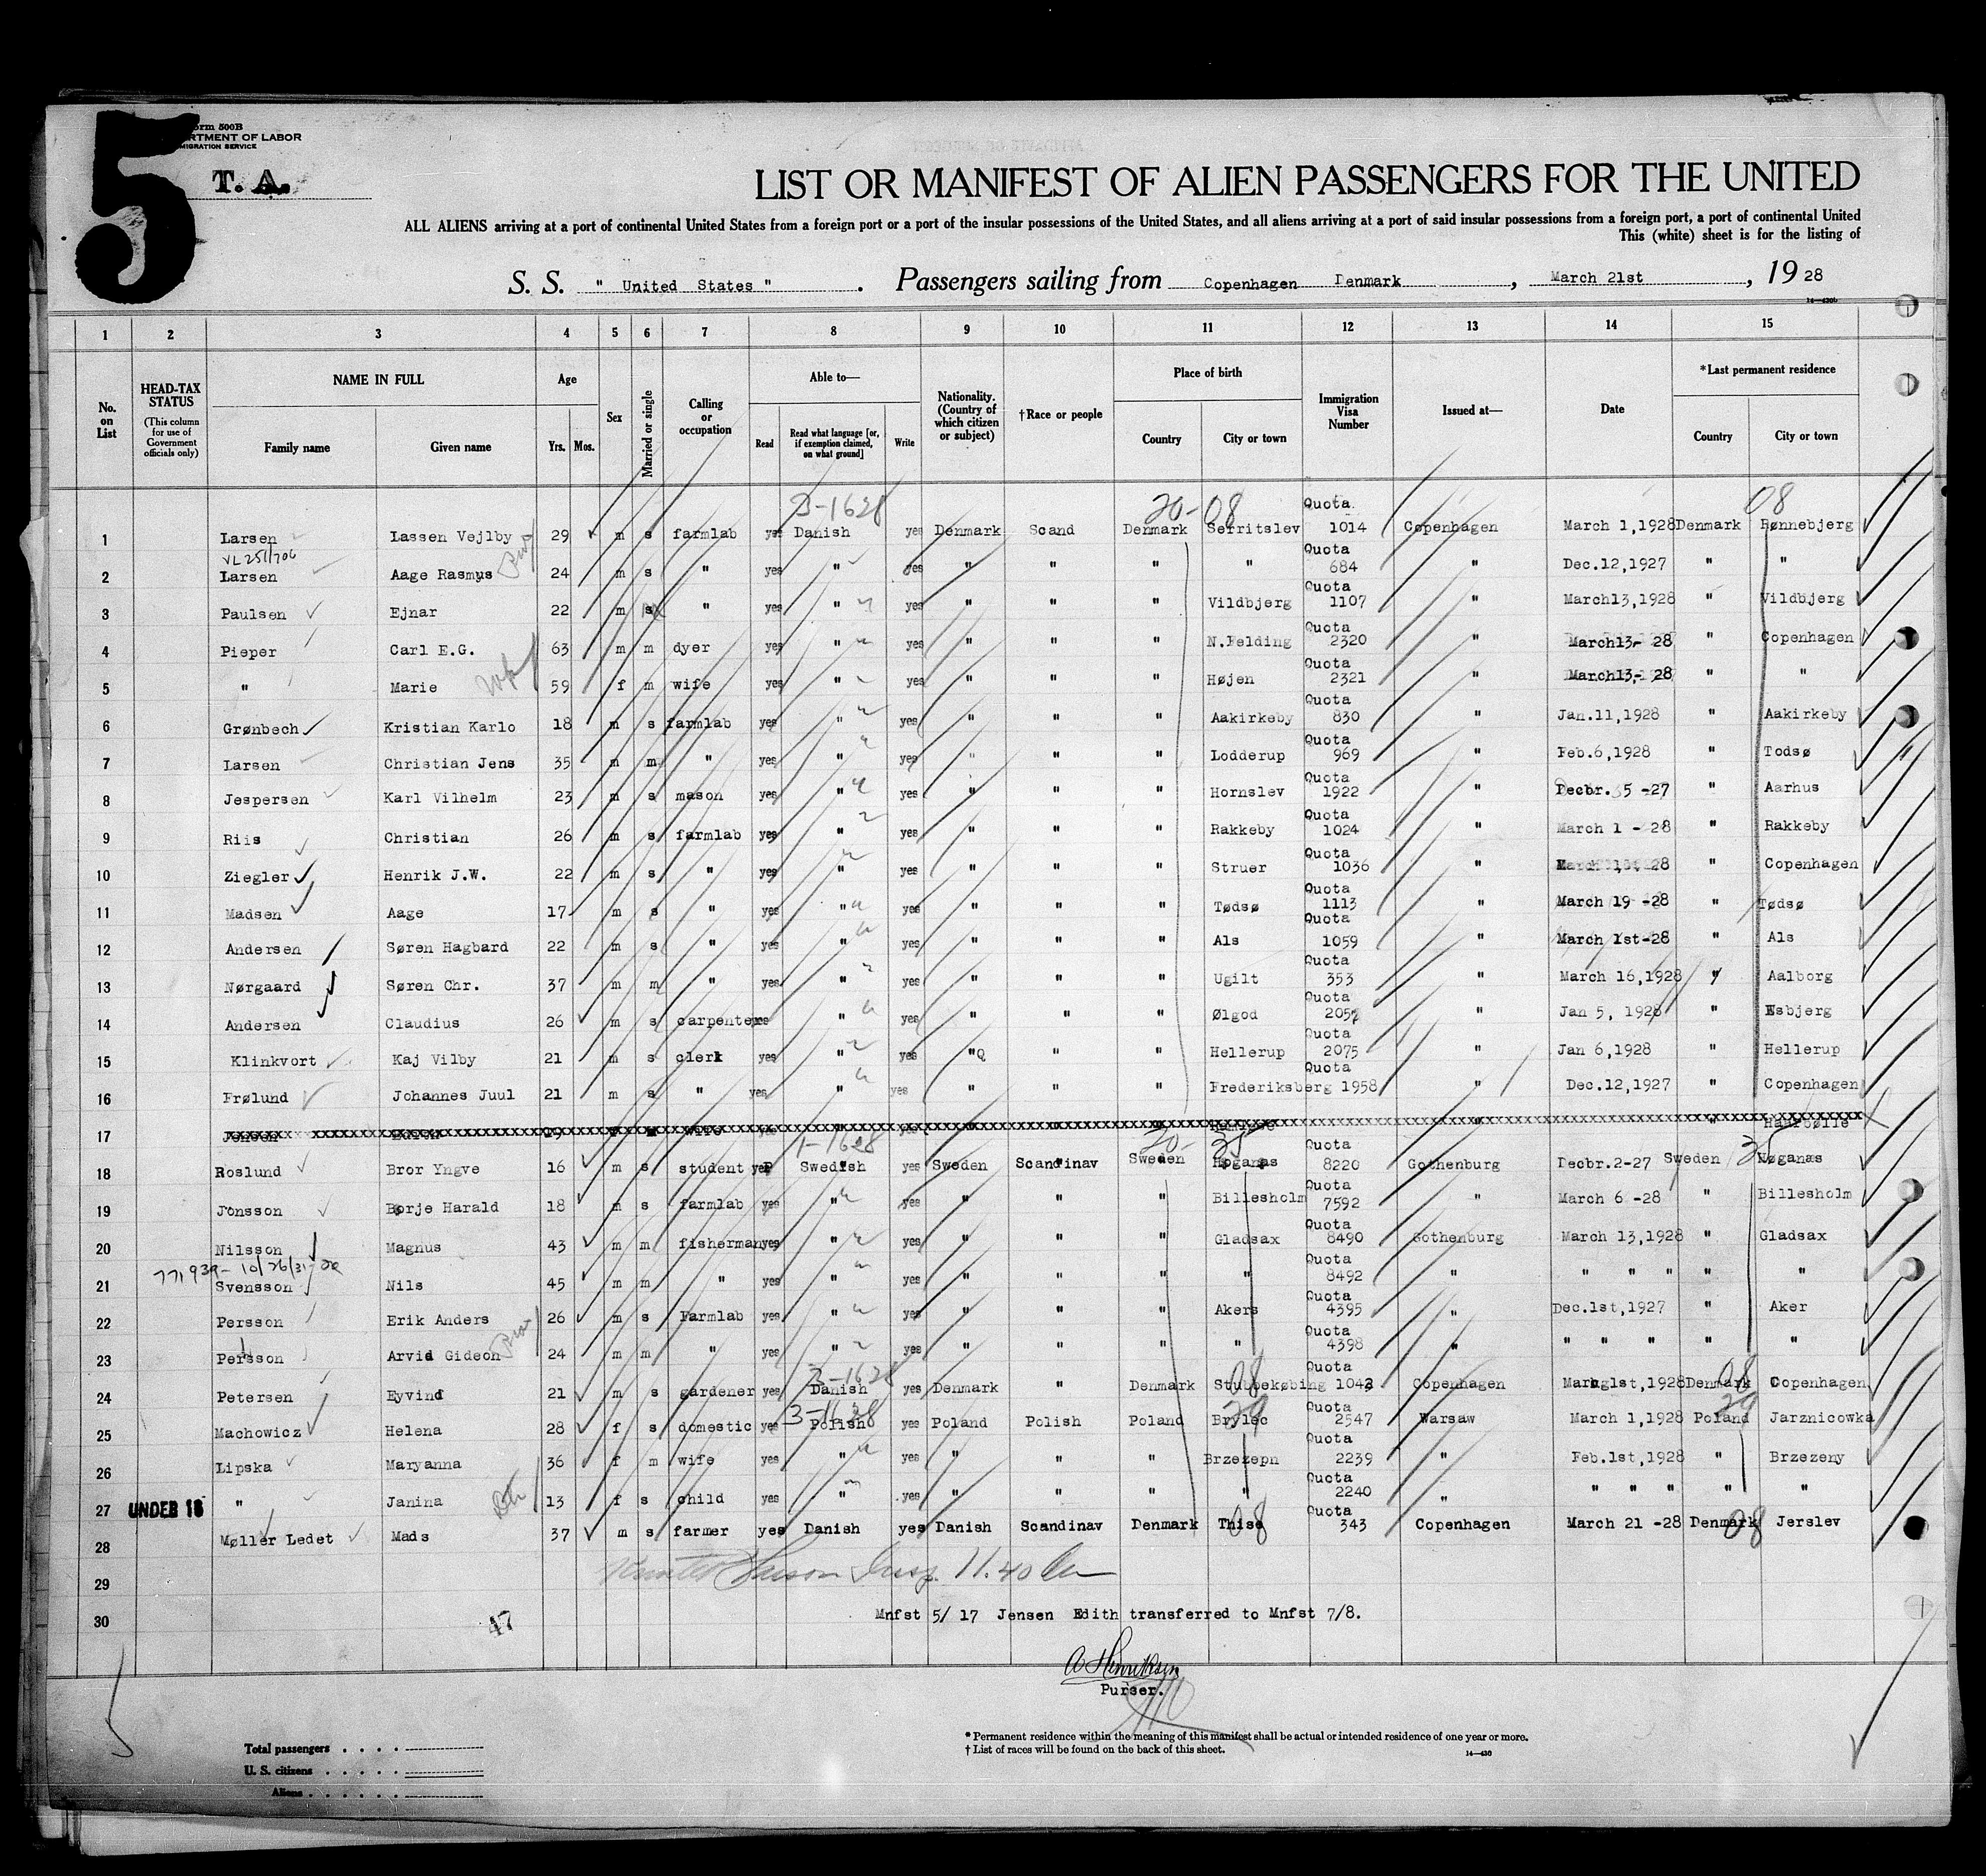 5
Form 500B
DEPARTMENT OF LABOR
IMMIGRATION SERVICE
T. A.
LIST OR MANIFEST OF ALIEN PASSENGERS FOR THE UNITED
ALL ALIENS arriving at a port of continental United States from a foreign port or a port of the insular possessions of the United States, and all aliens arriving at a port of said insular possessions from a foreign port, a port of continental United
This (white) sheet is for the listing of
S. S. " United States " . Passengers sailing from Copenhagen Denmark , March 21st , 19 28
14—430b
1 2 3 4 5 6 7 8 9 10 11 12 13 14 15
No. on List
HEAD-TAX STATUS (This column for use of Government officials only)
NAME IN FULL Family name Given name
Age Yrs. Mos.
Sex
Married or single
Calling or occupation
Able to— Read Read what language [or, if exemption claimed, on what ground] Write
Nationality. (Country of which citizen or subject)
†Race or people
Place of birth Country City or town
Immigration Visa Number
Issued at—
Date
*Last permanent residence Country City or town
3-1628 20-08 08
1 Larsen Lassen Vejlby 29 m s farmlab yes Danish yes Denmark Scand Denmark Serritslev Quota 1014 Copenhagen March 1,1928 Denmark Rønnebjerg
VL 251/706
2 Larsen Aage Rasmus 24 m s " yes " yes " " " " Quota 684 " Dec.12,1927 " "
3 Paulsen Ejnar 22 m s " yes " yes " " " Vildbjerg Quota 1107 " March13,1928 " Vildbjerg
4 Pieper Carl E.G. 63 m m dyer yes " yes " " " N.Felding Quota 2320 " March13- 28 " Copenhagen
5 " Marie 59 f m wife yes " yes " " " Højen Quota 2321 " March13- 28 " "
6 Grønbech Kristian Karlo 18 m s farmlab yes " yes " " " Aakirkeby Quota 830 " Jan.11,1928 " Aakirkeby
7 Larsen Christian Jens 35 m m " yes " yes " " " Lodderup Quota 969 " Feb.6,1928 " Todsø
8 Jespersen Karl Vilhelm 23 m s mason yes " yes " " " Hornslev Quota 1922 " Decbr. 5 -27 " Aarhus
9 Riis Christian 26 m s farmlab yes " yes " " " Rakkeby Quota 1024 " March 1 - 28 " Rakkeby
10 Ziegler Henrik J.W. 22 m s " yes " yes " " " Struer Quota 1036 " March 28 " Copenhagen
11 Madsen Aage 17 m s " yes " yes " " " Tødsø Quota 1113 " March 19 -28 " Tødsø
12 Andersen Søren Hagbard 22 m s " yes " yes " " " Als Quota 1059 " March 1st-28 " Als
13 Nørgaard Søren Chr. 37 m m " yes " yes " " " Ugilt Quota 353 " March 16,1928 " Aalborg
14 Andersen Claudius 26 m s carpenter yes " yes " " " Ølgod Quota 2057 " Jan 5, 1928 " Esbjerg
15 Klinkvort Kaj Vilby 21 m s clerk yes " yes " " " Hellerup Quota 2075 " Jan 6,1928 " Hellerup
16 Frølund Johannes Juul 21 m s " yes " yes " " " Frederiksberg Quota 1958 " Dec.12,1927 " Copenhagen
17 Jensen Edith wife " Haarbølle
1-1628 20- 35 35
18 Roslund Bror Yngve 16 m s student yes Swedish yes Sweden Scandinav Sweden Høganæs Quota 8220 Gothenburg Decbr.2-27 Sweden Høganæs
19 Jonsson Børje Harald 18 m s farmlab yes " yes " " " Billesholm Quota 7592 " March 6 -28 " Billesholm
20 Nilsson Magnus 43 m m fisherman yes " yes " " " Gladsax Quota 8490 Gothenburg March 13,1928 " Gladsax
771939- 10/26/31
21 Svensson Nils 45 m m " yes " yes " " " " Quota 8492 " " " " " "
22 Persson Erik Anders 26 m s Farmlab yes " yes " " " Akers Quota 4395 " Dec.1st,1927 " Aker
23 Persson Arvid Gideon 24 m m " yes " yes " " " " Quota 4398 " " " " " "
3-1628 08 08
24 Petersen Eyvind 21 m s gardener yes Danish yes Denmark " Denmark Stubbekøbing Quota 1043 Copenhagen 1st,1928 Denmark Copenhagen
3-1628 29 29
25 Machowicz Helena 28 f s domestic yes Polish yes Poland Polish Poland Brylec Quota 2547 Warsaw March 1,1928 Poland Jarznicowka
26 Lipska Maryanna 36 f m wife yes " yes " " " Brzezepn Quota 2239 " Feb.1st,1928 " Brzezeny
27 UNDER 16 " Janina 13 f s child yes " yes " " " " Quota 2240 " " " " " "
28 Møller Ledet Mads 37 m s farmer yes Danish yes Danish Scandinav Denmark Thise 08 Quota 343 Copenhagen March 21 -28 Denmark 08 Jerslev
29 Insp. 11.40
30 Mnfst 5/ 17 Jensen Edith transferred to Mnfst 7/8.
47
A Henriksen
Purser.
* Permanent residence within the meaning of this manifest shall be actual or intended residence of one year or more.
† List of races will be found on the back of this sheet.
14—430
Total passengers . . . .
U. S. citizens . . . . .
Aliens . . . . . .